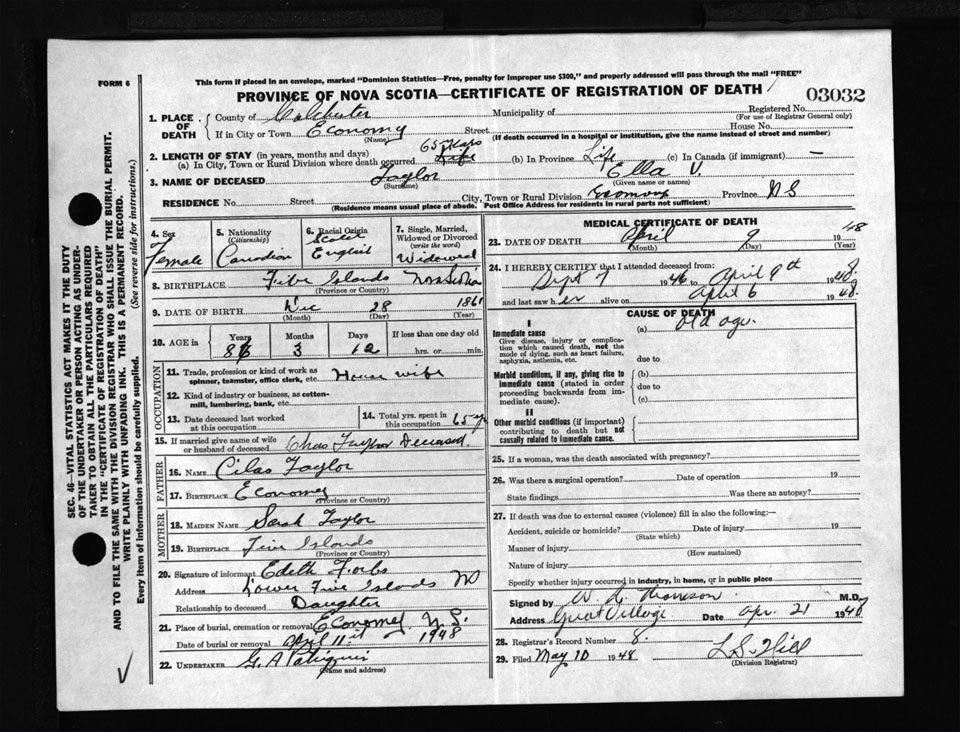 FORM 6
This form if placed in an envelope, marked "Dominion Statistics—Free, penalty for improper use $300," and properly addressed will pass through the mail "FREE"
PROVINCE OF NOVA SCOTIA—CERTIFICATE OF REGISTRATION OF DEATH
03032
1. PLACE OF DEATH
County of Colchester Municipality of Registered No.
(For use of Registrar General only)
If in City or Town Economy Street House No.
(Name) (If death occurred in a hospital or institution, give the name instead of street and number)
2. LENGTH OF STAY (in years, months and days) 65 years
(a) In City, Town or Rural Division where death occurred (b) In Province Life (c) In Canada (if immigrant) —
3. NAME OF DECEASED Taylor Ella V.
(Surname) (Given name or names)
RESIDENCE No. Street City, Town or Rural Division Economy Province N S
(Residence means usual place of abode. Post Office Address for residents in rural parts not sufficient)
4. Sex Female
5. Nationality (Citizenship) Canadian
6. Racial Origin Scotch English
7. Single, Married, Widowed or Divorced (write the word) Widowed
8. BIRTHPLACE Five Islands Nova Scotia
(Province or Country)
9. DATE OF BIRTH Dec 28 1861
(Month) (Day) (Year)
10. AGE in Years Months Days If less than one day old
86 3 12 hrs. or min.
OCCUPATION
11. Trade, profession or kind of work as spinner, teamster, office clerk, etc. House wife
12. Kind of industry or business, as cotton-mill, lumbering, bank, etc.
13. Date deceased last worked at this occupation
14. Total yrs. spent in this occupation 65 y
15. If married give name of wife or husband of deceased Chas Taylor Deceased.
FATHER
16. NAME Cilas Taylor
17. BIRTHPLACE Economy
(Province or Country)
MOTHER
18. MAIDEN NAME Sarah Taylor
19. BIRTHPLACE Five Islands
(Province or Country)
20. Signature of informant Edith Forbs
Address Lower Five Islands
Relationship to deceased Daughter
21. Place of burial, cremation or removal Economy N.S.
Date of burial or removal April 11st 1948
22. UNDERTAKER G. A
(Name and address)
MEDICAL CERTIFICATE OF DEATH
23. DATE OF DEATH April 9 1948
(Month) (Day) (Year)
24. I HEREBY CERTIFY that I attended deceased from:
Sept 7 1946 to April 9th 1948
and last saw her alive on April 6 1948.
CAUSE OF DEATH
I
Immediate cause (a) Old age.
Give disease, injury or complication which caused death, not the mode of dying, such as heart failure, asphyxia, asthenia, etc.
due to
Morbid conditions, if any, giving rise to immediate cause (stated in order proceeding backwards from immediate cause).
(b)
due to
(c)
II
Other morbid conditions (if important) contributing to death but not causally related to immediate cause.
25. If a woman, was the death associated with pregnancy?
26. Was there a surgical operation? Date of operation 19
State findings Was there an autopsy?
27. If death was due to external causes (violence) fill in also the following:—
Accident, suicide or homicide? Date of injury 19
(State which)
Manner of injury
(How sustained)
Nature of injury
Specify whether injury occurred in industry, in home, or in public place
Signed by M.D.
Address Great Village Date Apr. 21 1948
28. Registrar's Record Number 8.
29. Filed May 10 1948 L S. Hill
(Division Registrar)
SEC. 46—VITAL STATISTICS ACT MAKES IT THE DUTY
OF THE UNDERTAKER OR PERSON ACTING AS UNDER-
TAKER TO OBTAIN ALL THE PARTICULARS REQUIRED
IN THE "CERTIFICATE OF REGISTRATION OF DEATH"
AND TO FILE THE SAME WITH THE DIVISION REGISTRAR WHO SHALL ISSUE THE BURIAL PERMIT.
WRITE PLAINLY WITH UNFADING INK. THIS IS A PERMANENT RECORD.
Every item of information should be carefully supplied. (See reverse side for instructions.)